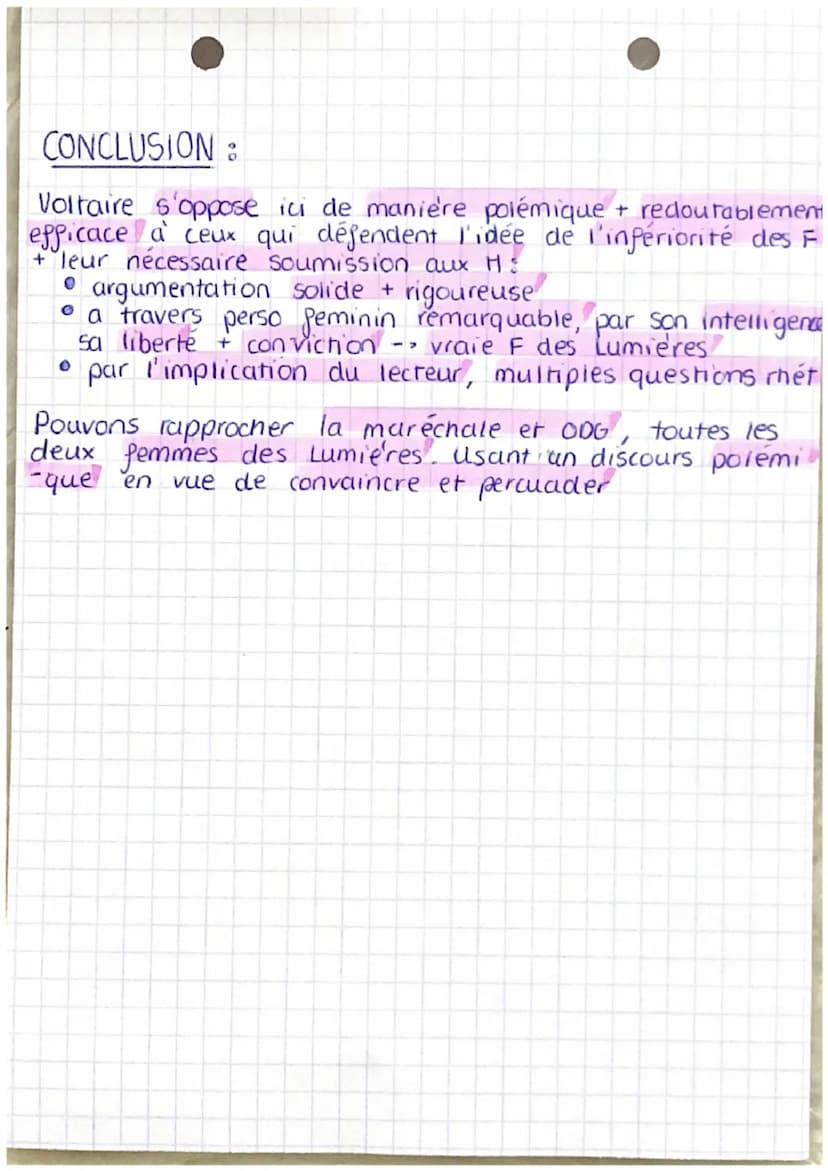 CONCLUSION :
Voltaire s'oppose ici de manière polémique + redourablement
efficace à ceux qui défendent l'idée de l'infériorité des F
+ leur nécessaire soumission aux H :
• argumentation solide + rigoureuse
• a travers perso feminin remarquable, par son intelligence
sa liberté + conviction -> vraie F des Lumières
• par l'implication du lecteur, multiples questions rhét
Pouvons rapprocher la maréchale et ODG, toutes les
deux femmes des Lumières. Usant un discours polémi
-que en vue de convaincre et percuader